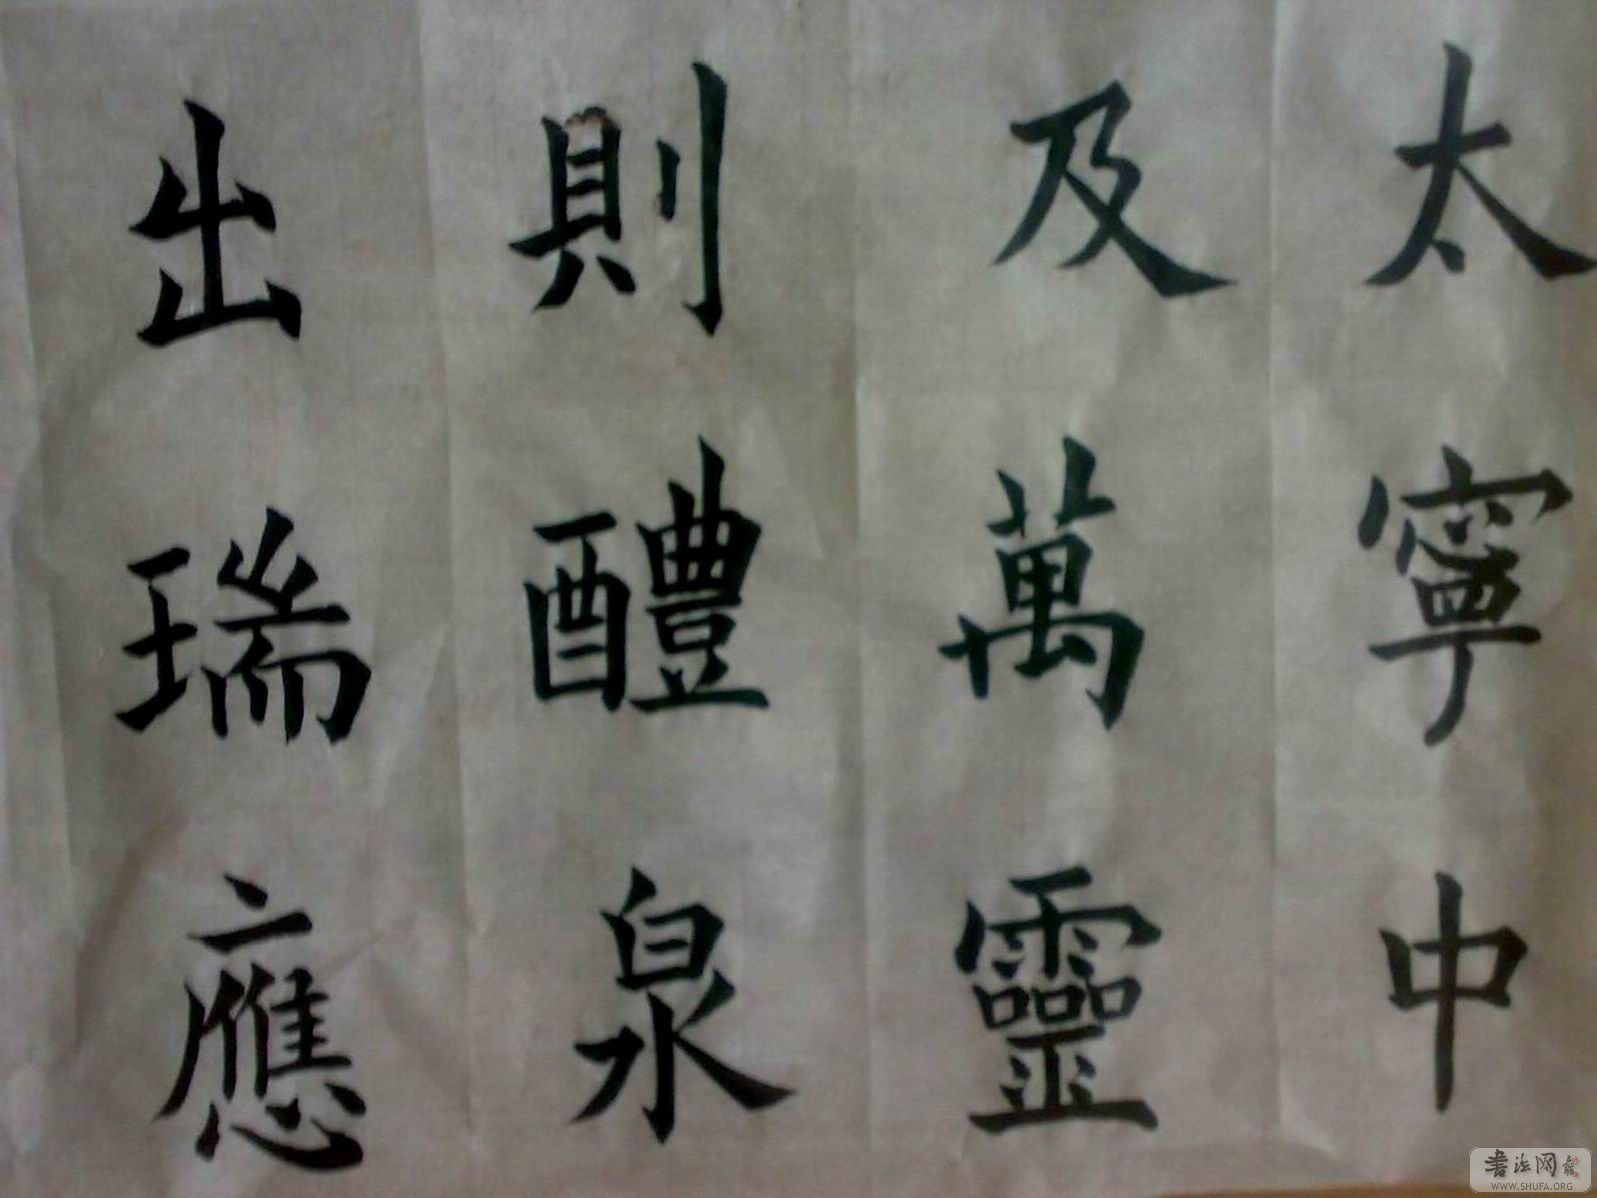 太寧中
及萬靈
則醴泉
出瑞應
书法网
WWW.SHUFA.ORG